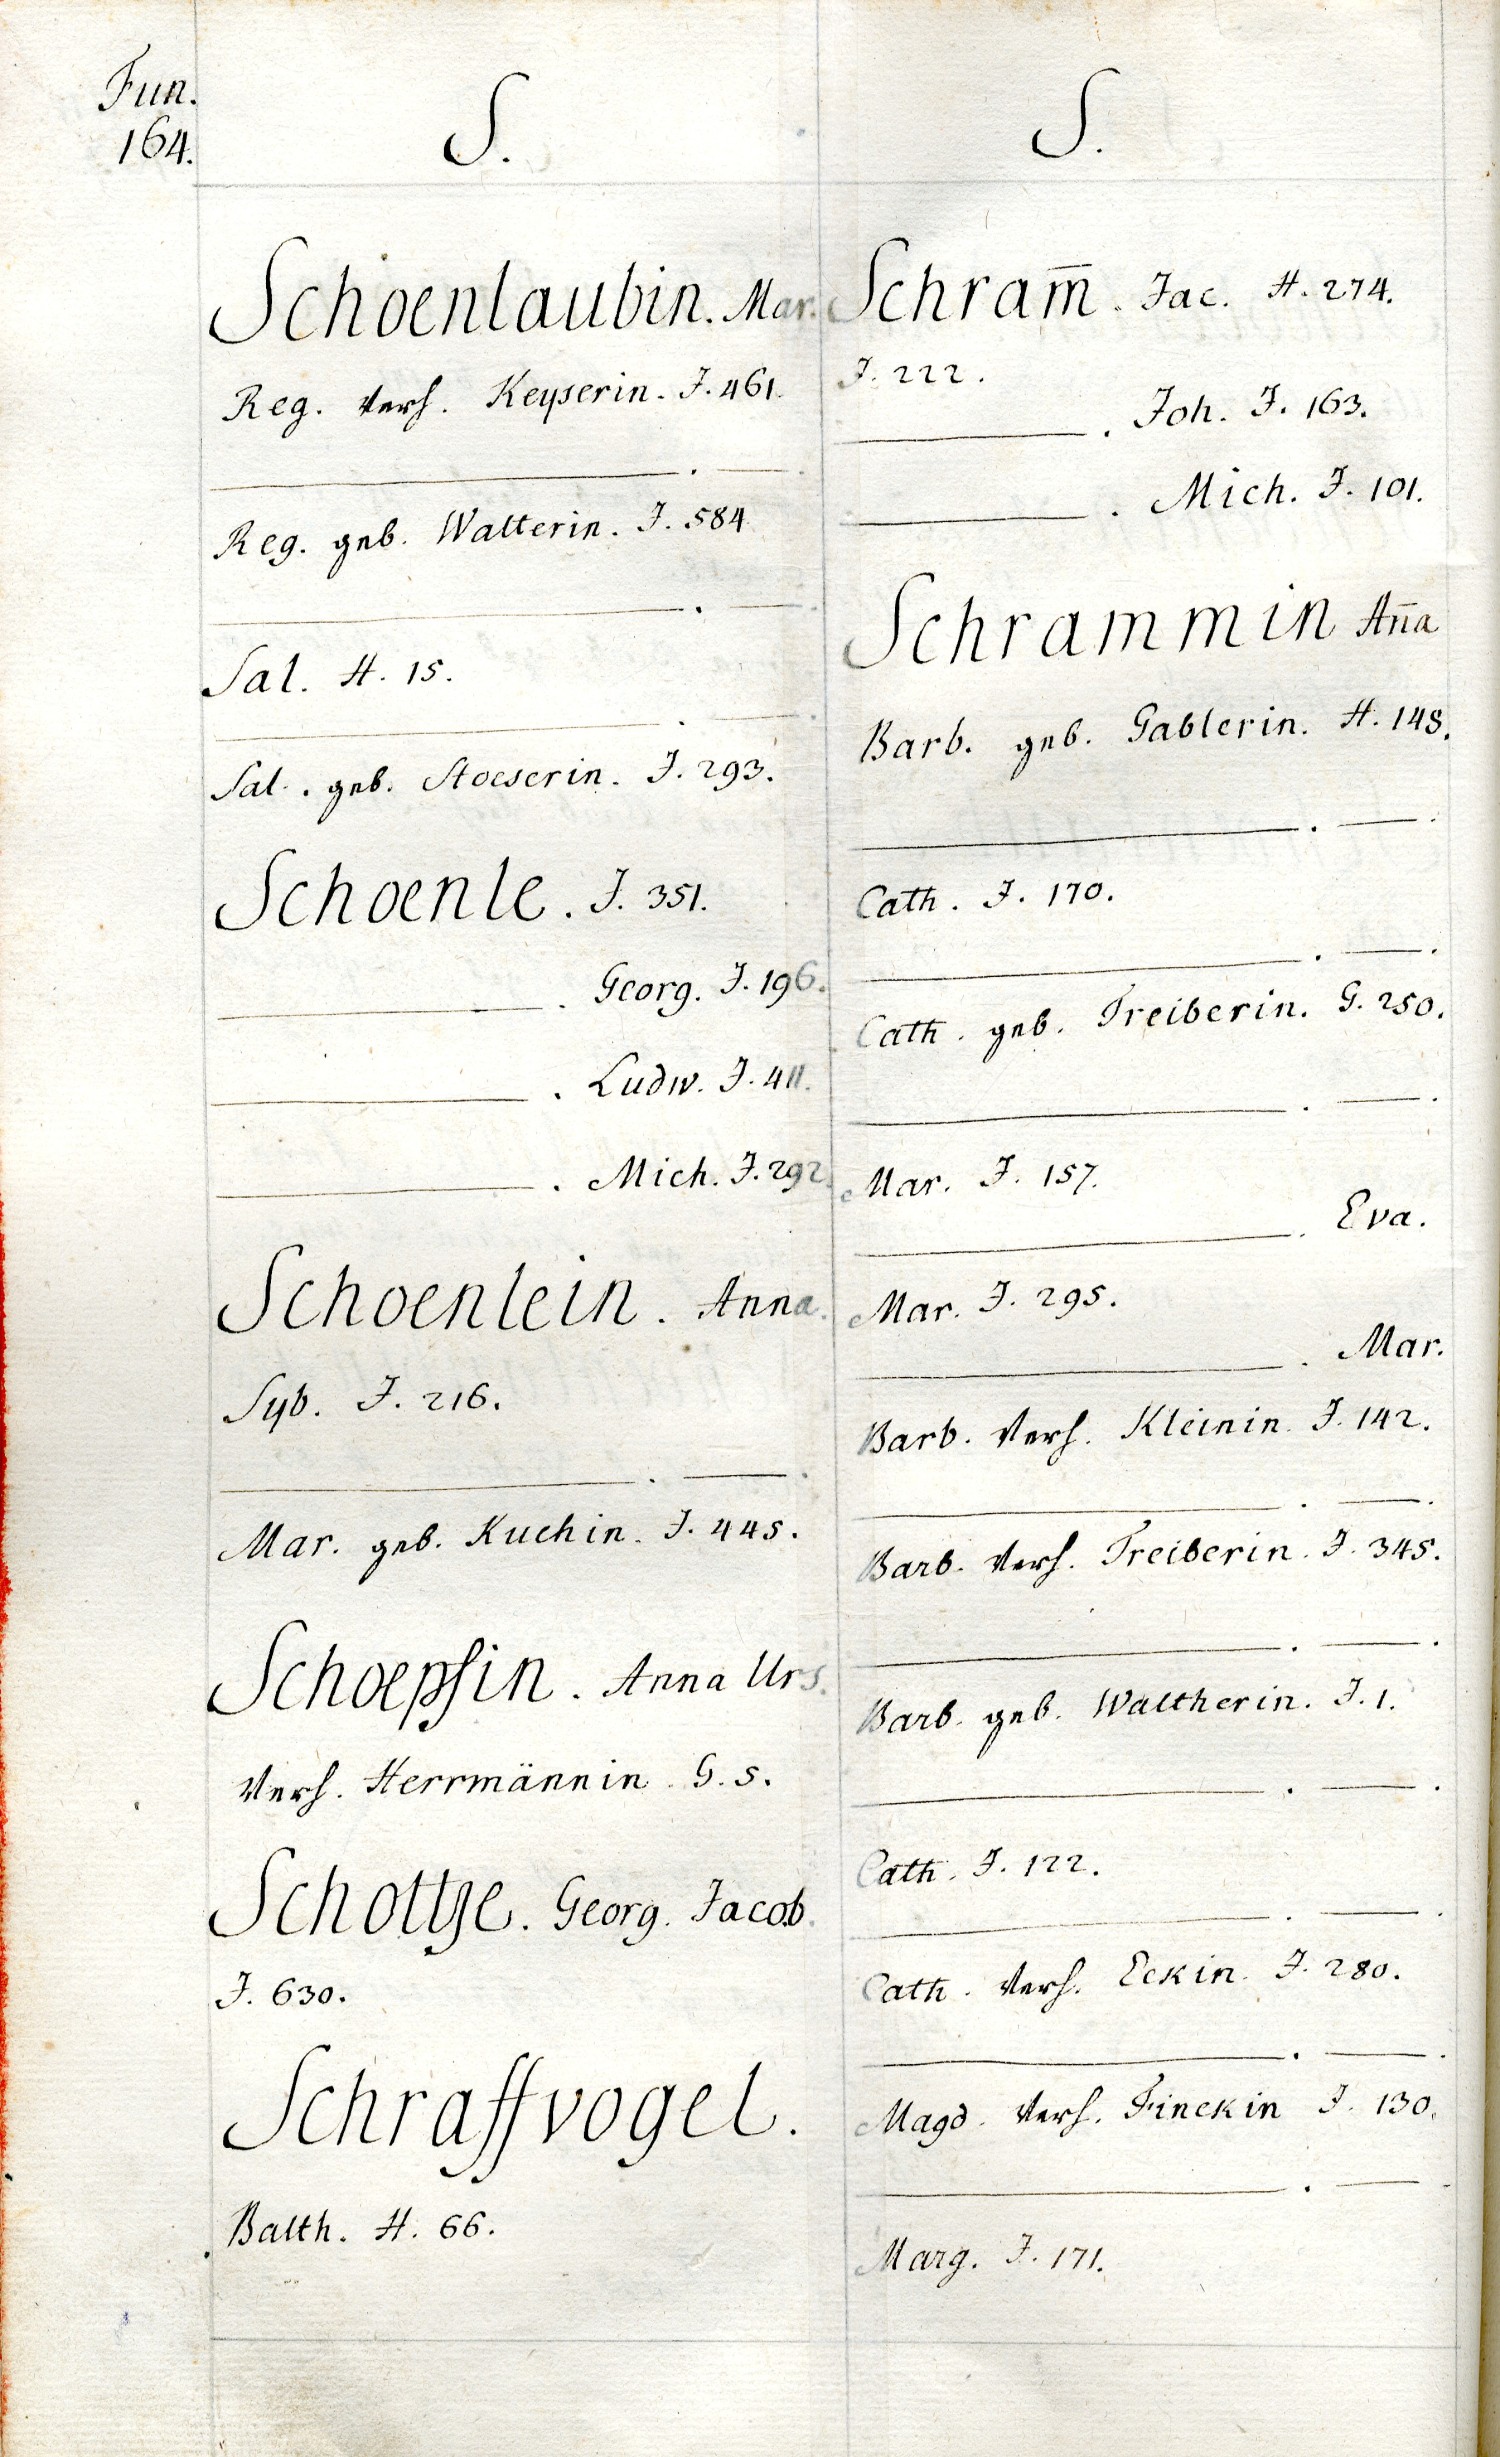 Fun.
164.
S.
Schoenlaubin. Mar.
Reg. verh. Keyserin. J. 461.
———. ——.
Reg. geb. Walterin. J. 584.
———. ——.
Sal. H. 15.
———. ——.
Sal. geb. Stoeserin. J. 293.
Schoenle. J. 351.
———. Georg. J. 196.
———. Ludw. J. 411.
———. Mich. J. 292.
Schoenlein. Anna.
Syb. J. 216.
———. ——.
Mar. geb. Kuchin. J. 445.
Schoepfin. Anna Urs.
verh. Herrmännin. G. 5.
Schottge. Georg. Jacob.
J. 630.
Schraffvogel.
Balth. H. 66.
S.
Schram̄. Jac. H. 274.
J. 222.
———. Joh. J. 163.
———. Mich. J. 101.
Schrammin An̄a
Barb. geb. Gablerin. H. 148.
———. ——.
Cath. J. 170.
———. ——.
Cath. geb. Treiberin. G. 250.
———. ——.
Mar. J. 157.
———. Eva.
Mar. J. 295.
———. Mar.
Barb. verh. Kleinin. J. 142.
———. ——.
Barb. verh. Treiberin. J. 345.
———. ——.
Barb. geb. Waltherin. J. 1.
———. ——.
Cath. J. 122.
———. ——.
Cath. verh. Eckin. J. 280.
———. ——.
Magd. verh. Finckin J. 130.
———. ——.
Marg. J. 171.